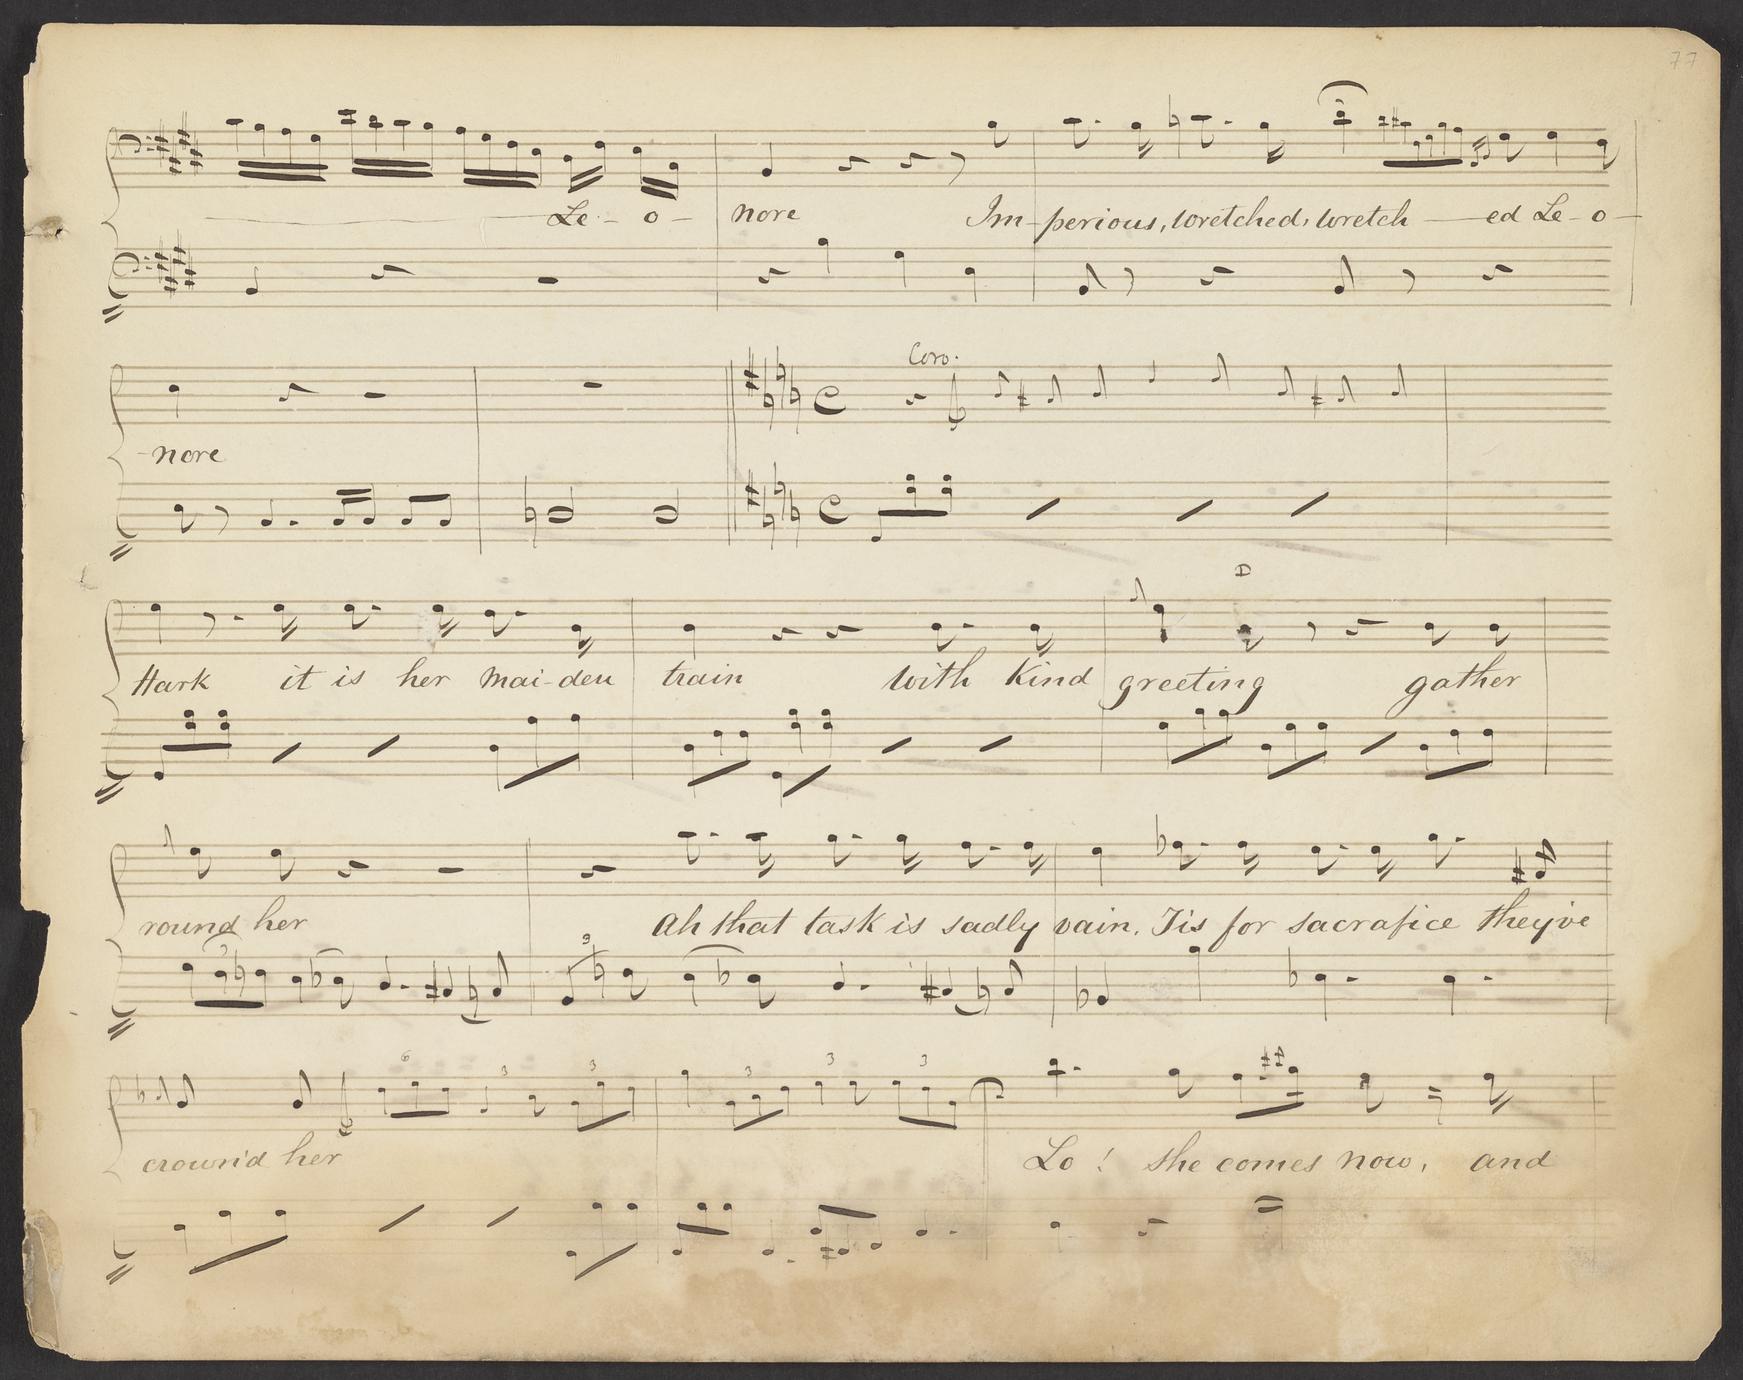 77
Le - o -
nore Im - perious, wretched, wretch - ed Le - o -
Coro.
- nore
D
Hark it is her mai - den train with Kind greeting gather
3
round her Ah that task is sadly vain. Tis for sacrafice they've
3
6 3 3 3 3 3
crown'd her Lo ! she comes now, and